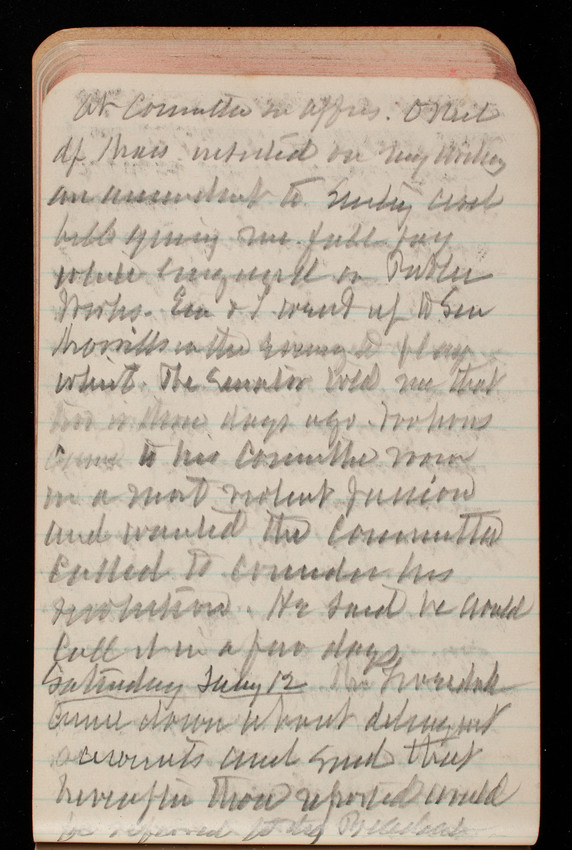 at Committee on affrs. O Neil
of Mass inserted on my
an amendment to Sundry Civil
bill giving me full pay
while engaged on Public
Works. Eva & I went up to Sen
Morrills in the evening to play
whist. The Senator told me that
two or three days ago
came to his Committee room
in a most violent passion
and wanted the Committee
called to consider his
resolution. He said he would
call it in a few days
Saturday July 12
came down about delinquent
accounts and said that
hereafter those reported would
be referred to